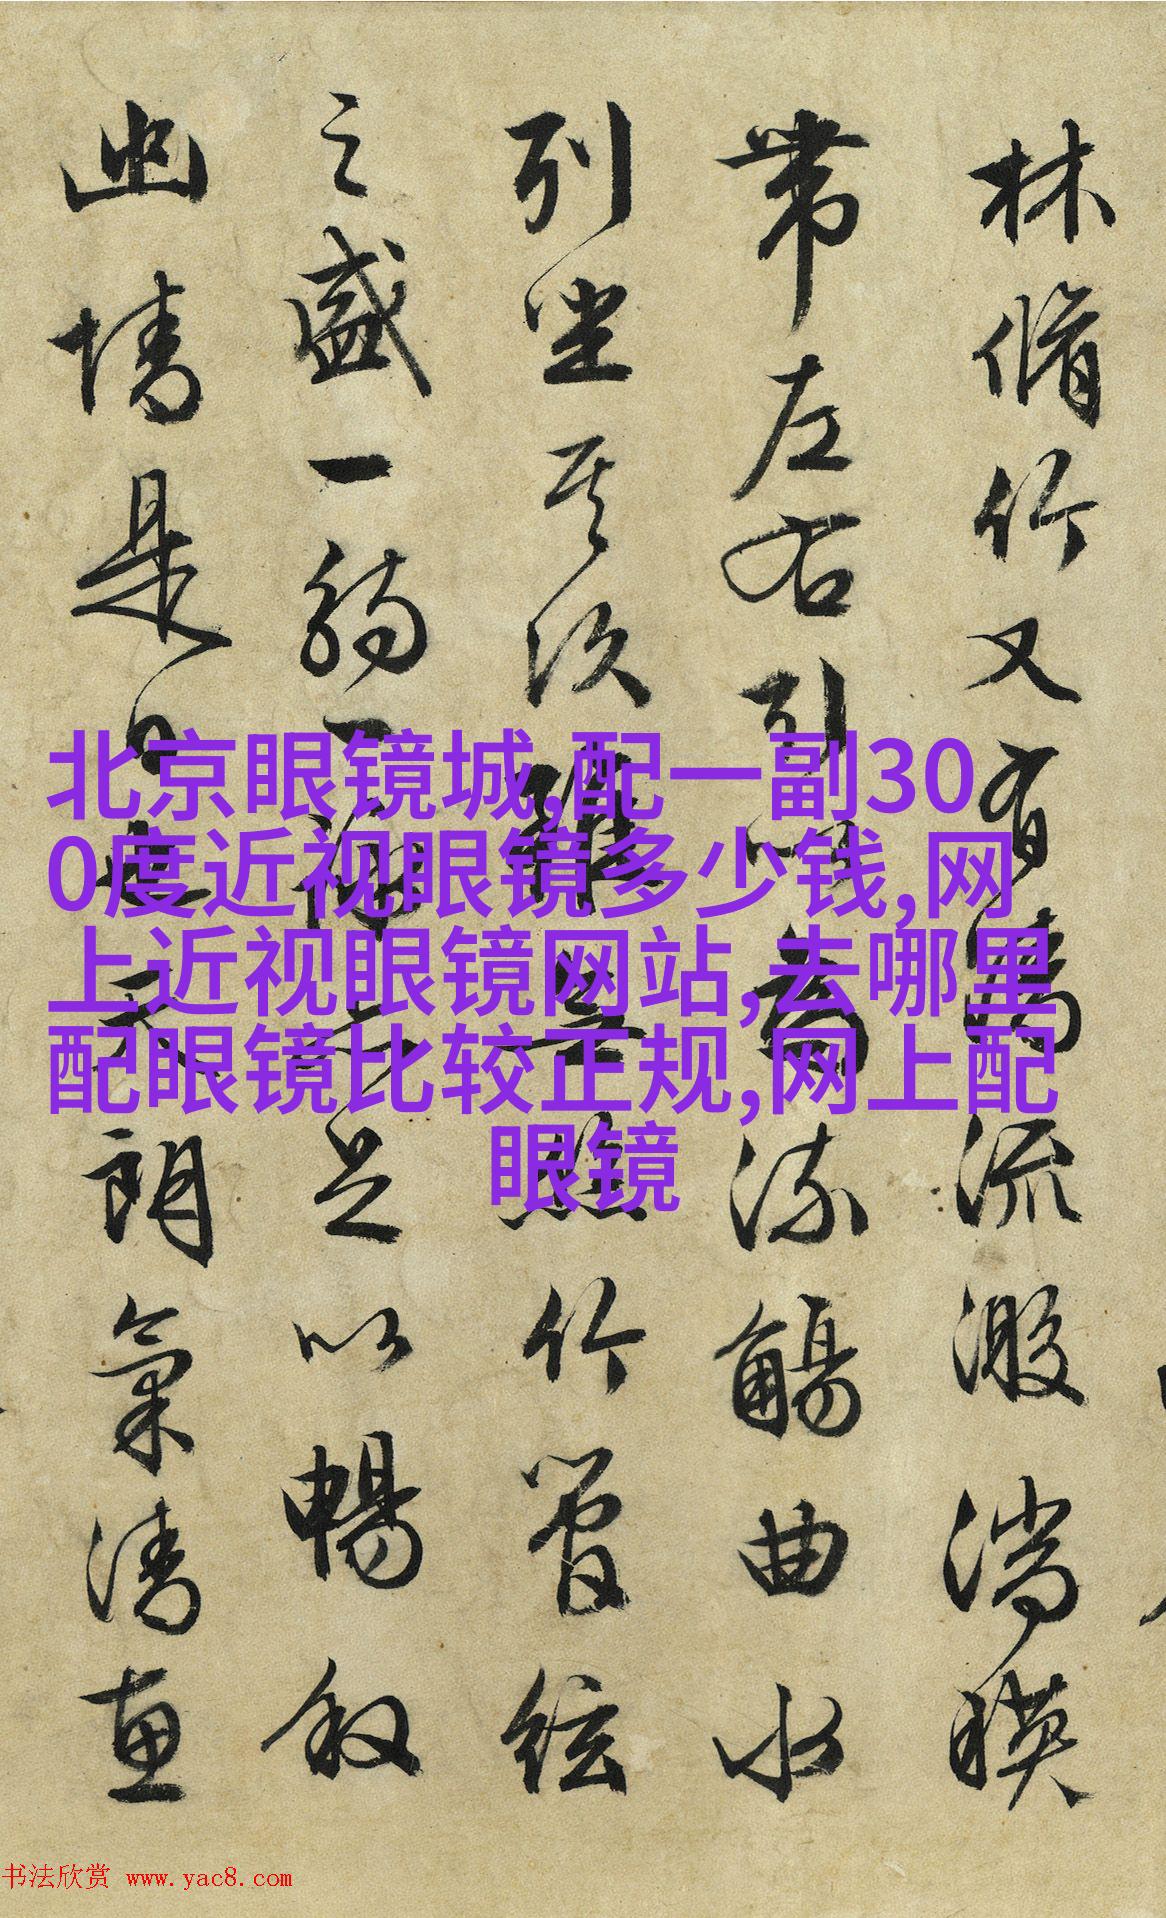 林脩竹又有清流激湍暎
带左右引以為流觴曲水
列坐其次雖無絲竹管弦
之盛一觴一詠亦足以暢叙
幽情是日也天朗氣清惠
北京眼镜城,配一副30
0度近视眼镜多少钱,网
上近视眼镜网站,去哪里
配眼镜比较正规,网上配
眼镜
书法欣赏 www.yac8.com